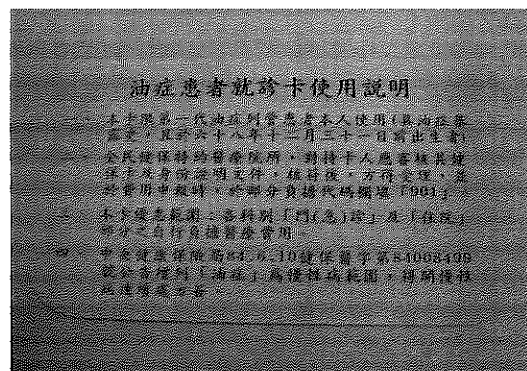 油症患者就診卡使用說明
本卡限第一代油症列管患者本人使用(具油症
，且於六十八年十二月三十一日前出生者)
全民健保特約醫療院所，對持卡人應審核其健
保卡及身份證明文件，核符後，方得受理，並
於費用申報時，於部分負擔代碼欄填「901」
三、本卡優惠範圍：各科別「門(急)診」及「住院」
部分之自行負擔醫療費用。
四、中央健康保險局84.6.10健保醫字第84008499
「油症」為慢性病範圍，得開慢性